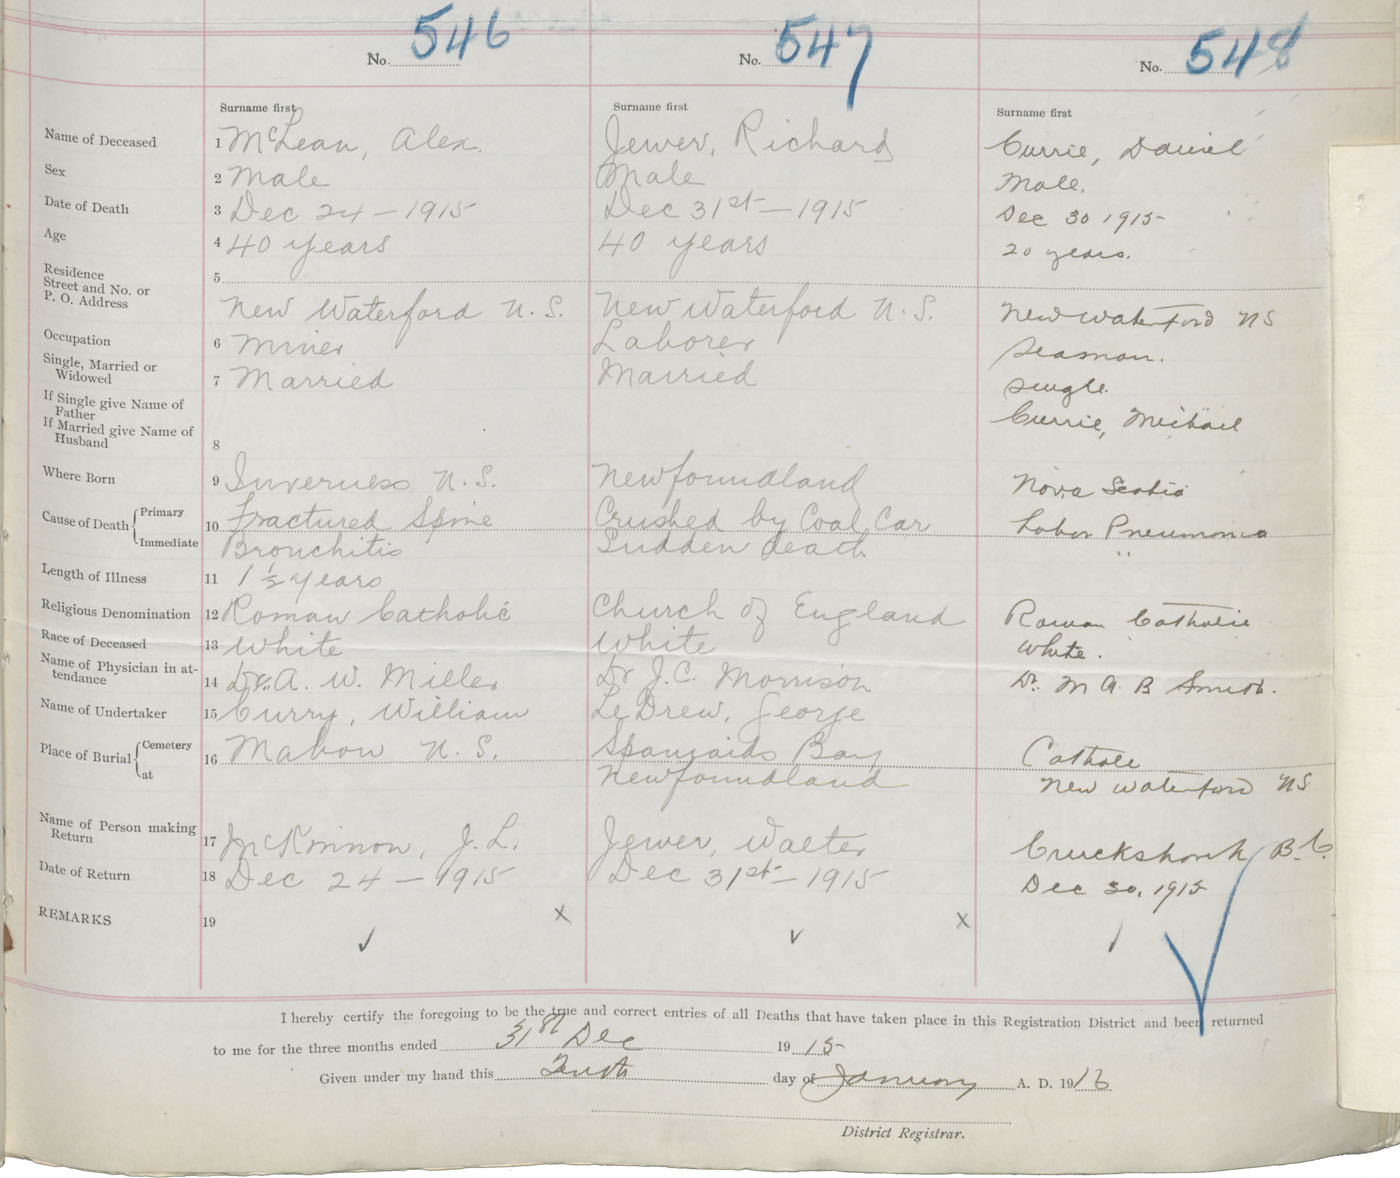 No. 546
No. 547
No. 548
Surname first
Surname first
Surname first
Name of Deceased 1 McLean, Alex. Jewer, Richard Currie, Daniel
Sex 2 Male Male Male.
Date of Death 3 Dec 24 – 1915 Dec 31st – 1915 Dec 30 1915
Age 4 40 years 40 years 20 years.
Residence
Street and No. or 5
P. O. Address
New Waterford N. S. New Waterford N. S. New Waterford NS
Occupation 6 Miner Laborer Seaman.
Single, Married or
Widowed 7 Married Married Single.
If Single give Name of
Father
If Married give Name of
Husband 8 Currie, Michael
Where Born 9 Inverness N. S. Newfoundland Nova Scotia
Cause of Death Primary 10 Fractured Spine Crushed by Coal Car Lobar Pneumonia
Immediate Bronchitis Sudden death "
Length of Illness 11 1 ½ years
Religious Denomination 12 Roman Catholic Church of England Roman Catholic
Race of Deceased 13 White White White.
Name of Physician in at-
tendance 14 Dr. A. W. Miller Dr J. C. Morrison Dr. M A. B Smith.
Name of Undertaker 15 Curry, William LeDrew, George
Place of Burial Cemetery 16 Mabou N. S. Spaniards Bay Catholic
at Newfoundland New Waterford NS
Name of Person making
Return 17 McKinnon, J. L. Jewer, Walter Cruckshank B. C.
Date of Return 18 Dec 24 – 1915 Dec 31st – 1915 Dec 30, 1915
REMARKS 19
I hereby certify the foregoing to be the true and correct entries of all Deaths that have taken place in this Registration District and been returned
to me for the three months ended 31st Dec 1915
Given under my hand this Tenth day of January A. D. 1916
District Registrar.